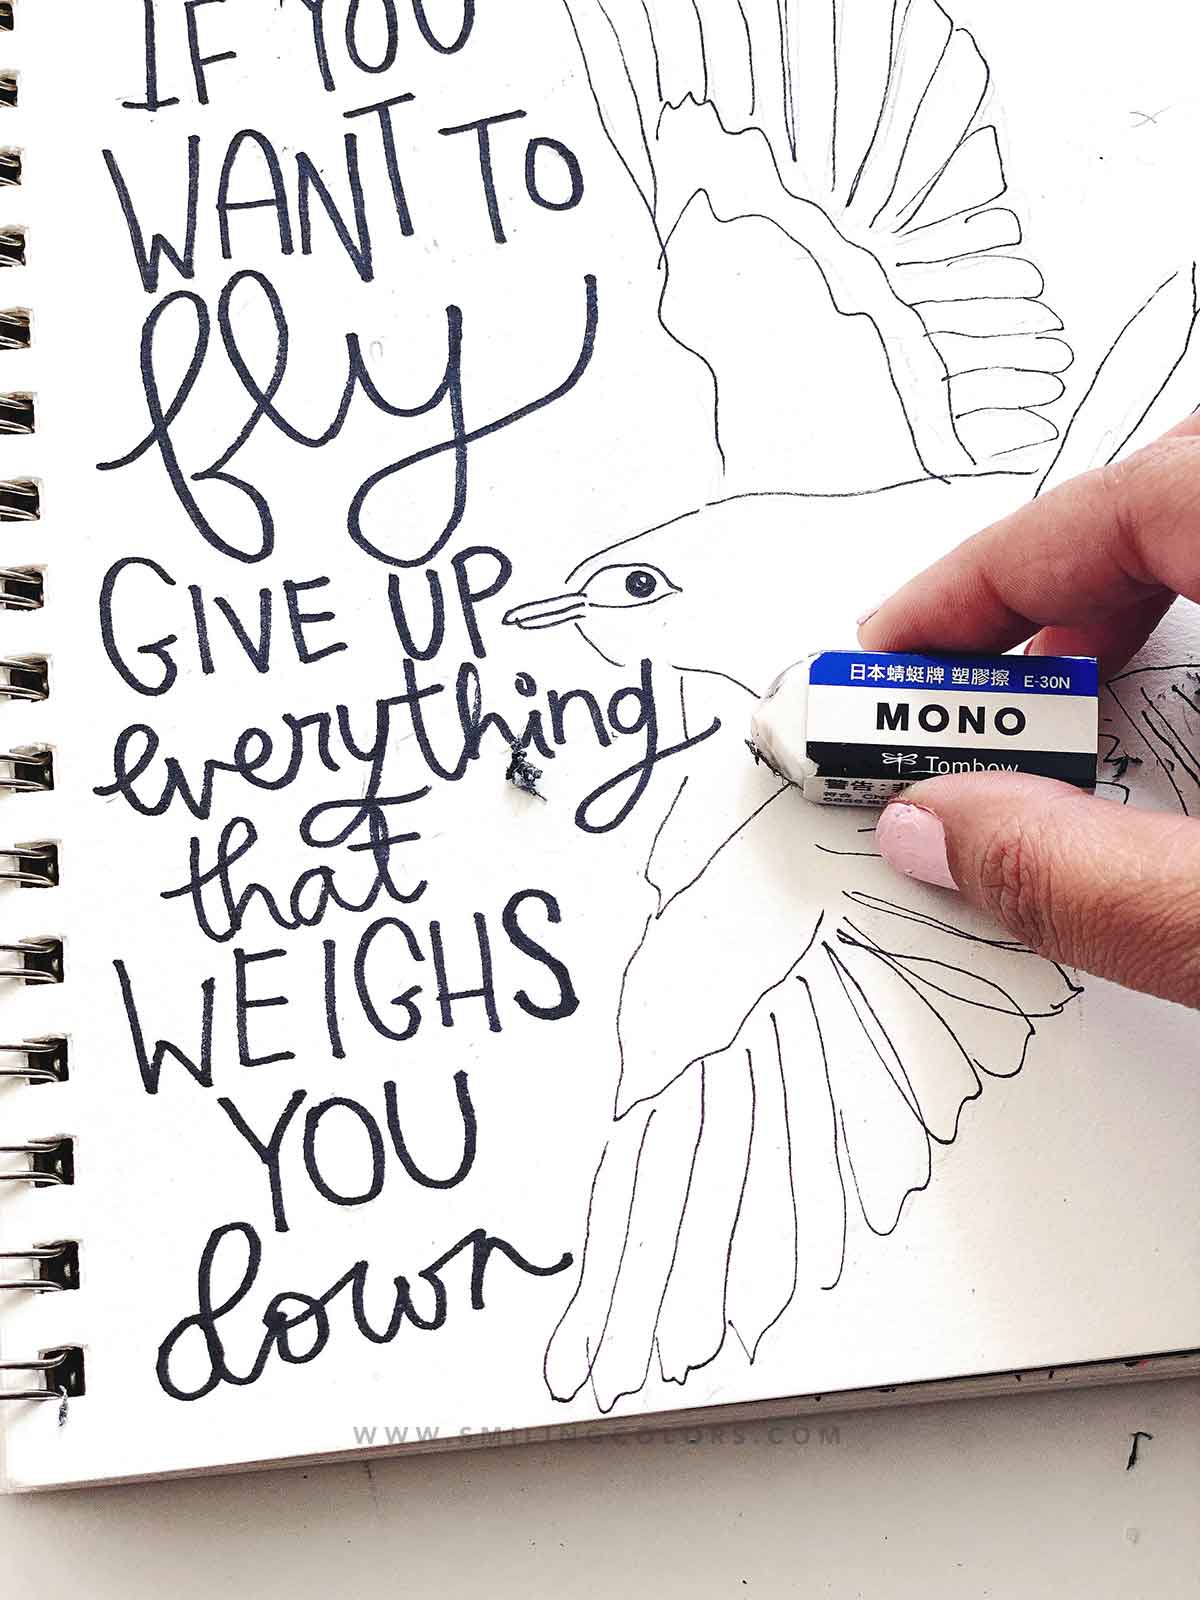 IF YOU
WANT TO
fly
GIVE UP
everything
that
WEIGHS
YOU
down
日本蜻蜓牌 塑膠擦 E-30N
MONO
Tombow
警告:
WWW.SMILINGCOLORS.COM